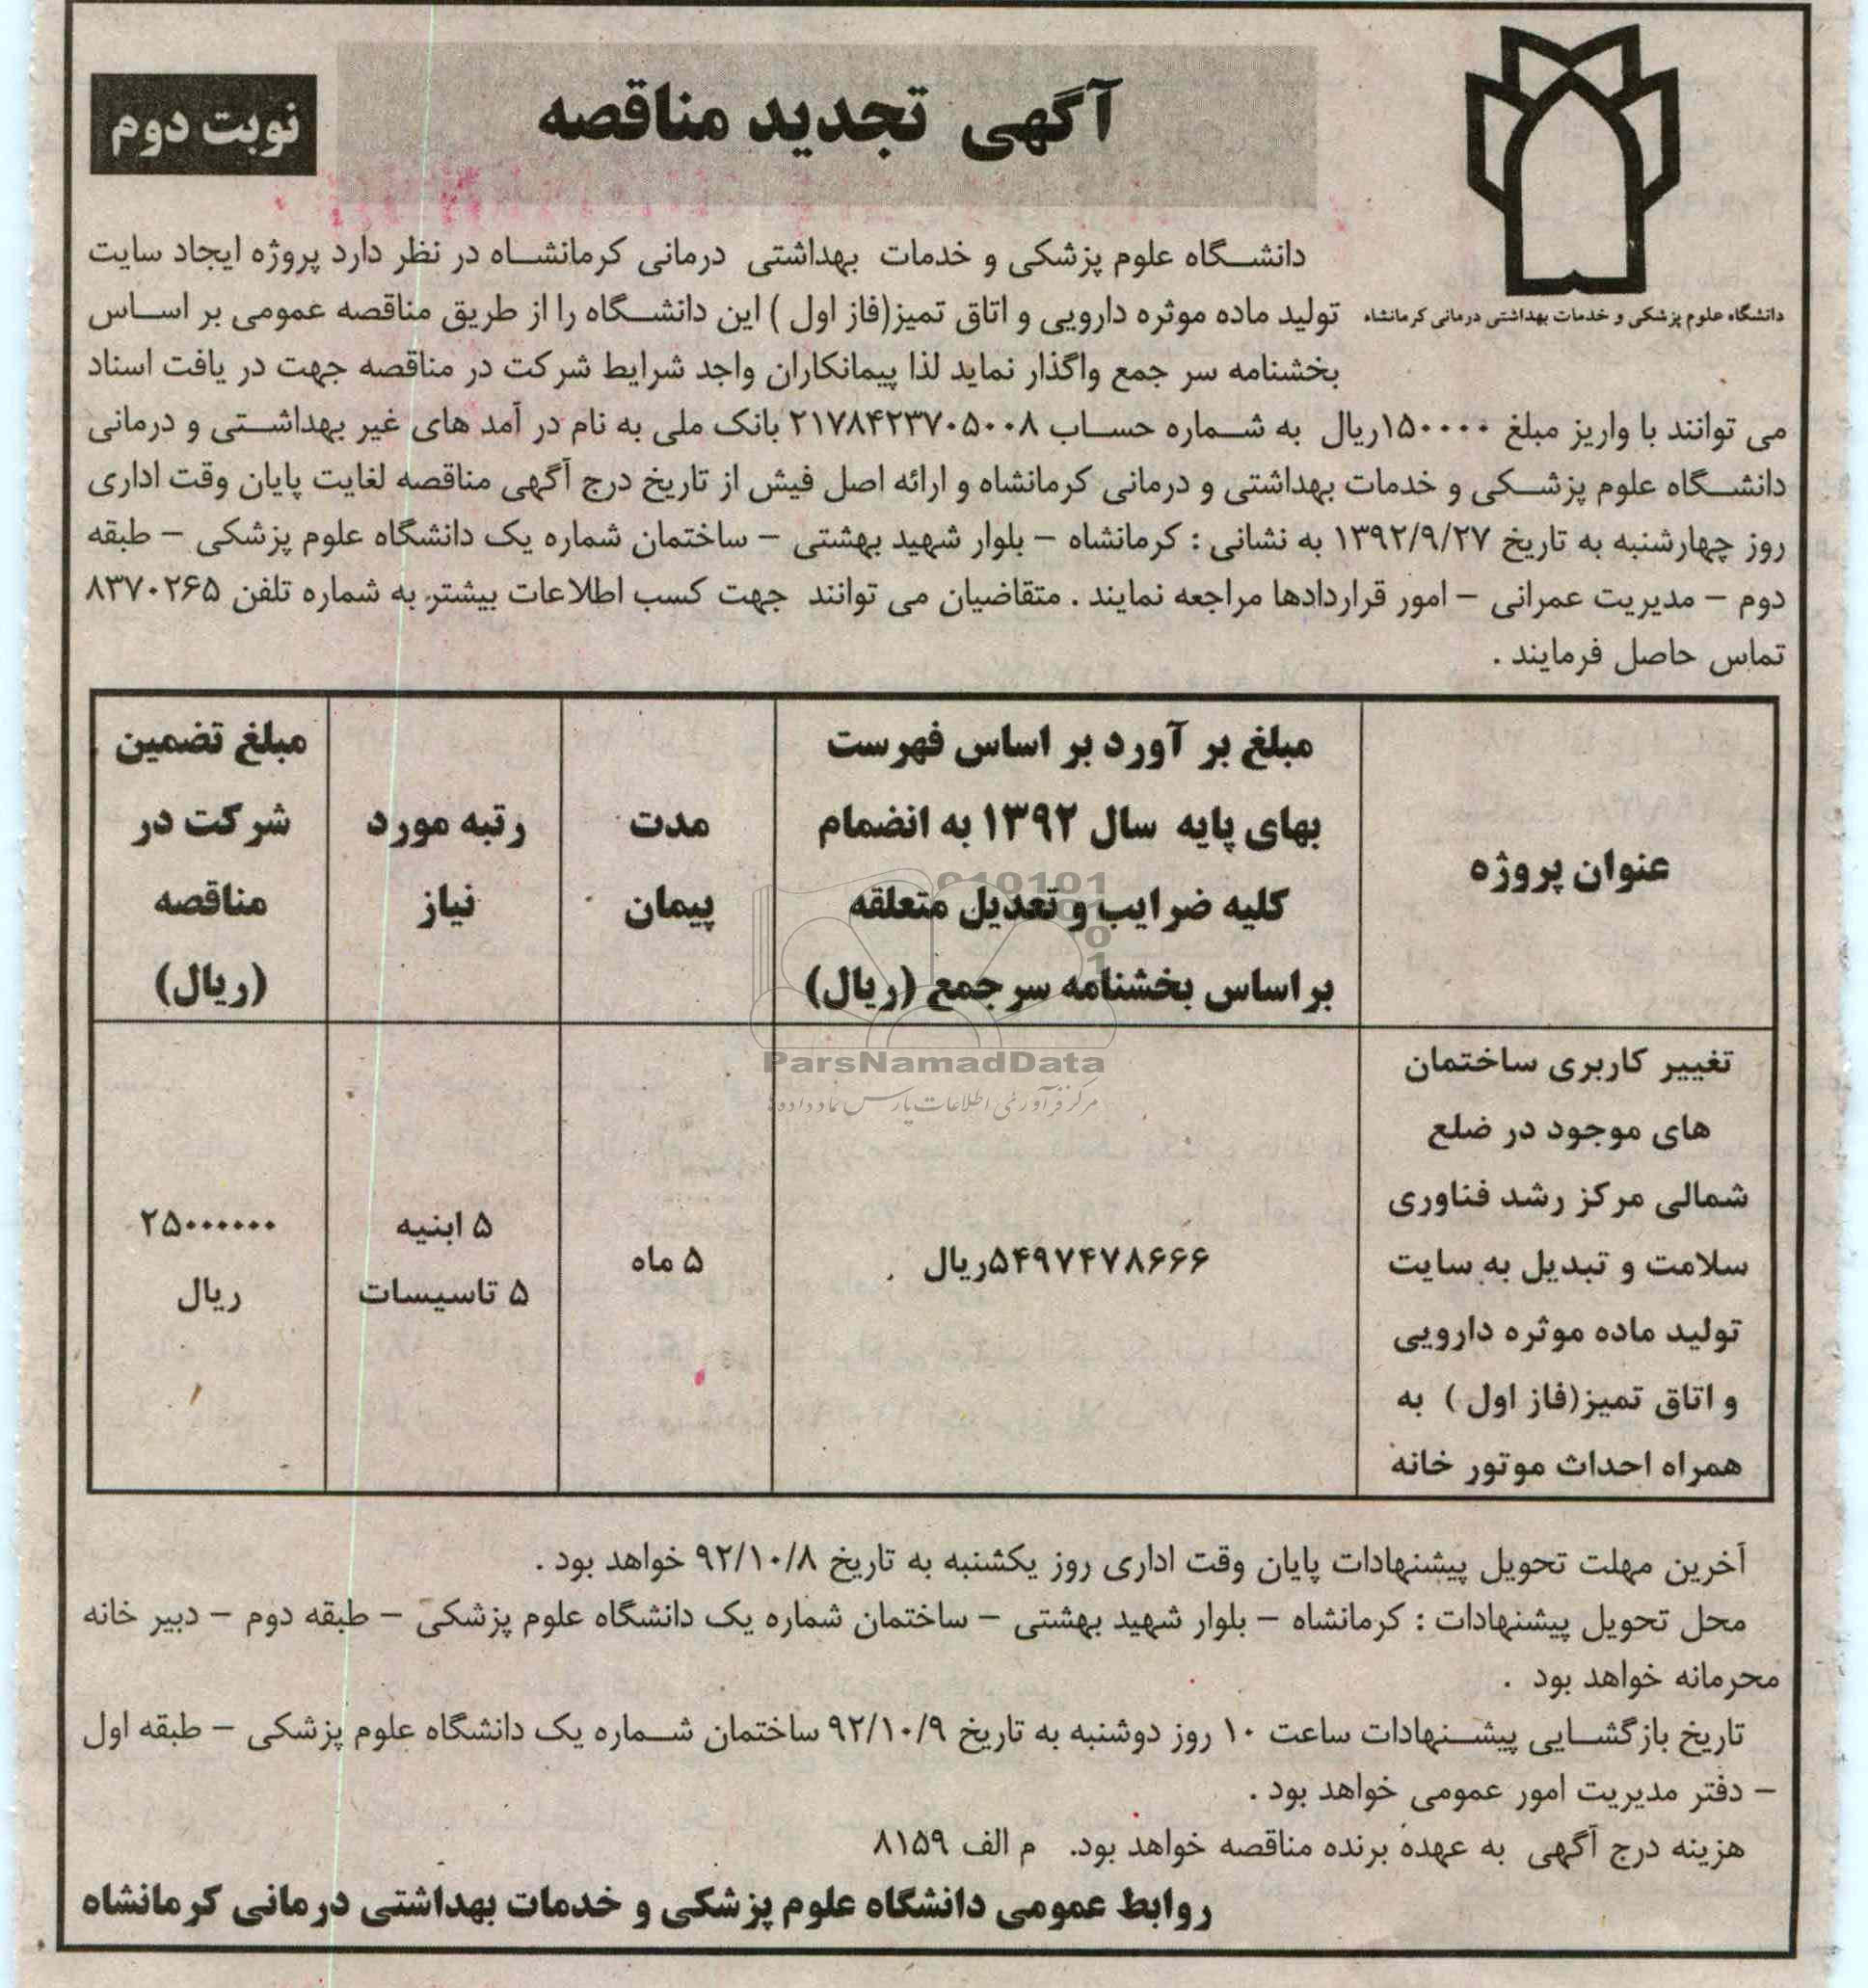 آگهی تجدید مناقصه
نوبت دوم
دانشگاه علوم پزشکی و خدمات بهداشتی درمانی کرمانشاه
دانشگاه علوم پزشکی و خدمات بهداشتی درمانی کرمانشاه در نظر دارد پروژه ایجاد سایت
تولید ماده موثره دارویی و اتاق تمیز(فاز اول ) این دانشگاه را از طریق مناقصه عمومی بر اساس
بخشنامه سر جمع واگذار نماید لذا پیمانکاران واجد شرایط شرکت در مناقصه جهت در یافت اسناد
می توانند با واریز مبلغ ۱۵۰۰۰۰ریال به شماره حساب ۲۱۷۸۴۲۳۷۰۵۰۰۸ بانک ملی به نام در آمد های غیر بهداشتی و درمانی
دانشگاه علوم پزشکی و خدمات بهداشتی و درمانی کرمانشاه و ارائه اصل فیش از تاریخ درج آگهی مناقصه لغایت پایان وقت اداری
روز چهارشنبه به تاریخ ۱۳۹۲/۹/۲۷ به نشانی : کرمانشاه – بلوار شهید بهشتی – ساختمان شماره یک دانشگاه علوم پزشکی – طبقه
دوم – مدیریت عمرانی – امور قراردادها مراجعه نمایند . متقاضیان می توانند جهت کسب اطلاعات بیشتر به شماره تلفن ۸۳۷۰۲۶۵
تماس حاصل فرمایند .
عنوان پروژه
مبلغ بر آورد بر اساس فهرست
بهای پایه سال ۱۳۹۲ به انضمام
کلیه ضرایب و تعدیل متعلقه
بر اساس بخشنامه سر جمع (ریال)
مدت
پیمان
رتبه مورد
نیاز
مبلغ تضمین
شرکت در
مناقصه
(ریال)
تغییر کاربری ساختمان
های موجود در ضلع
شمالی مرکز رشد فناوری
سلامت و تبدیل به سایت
تولید ماده موثره دارویی
و اتاق تمیز(فاز اول ) به
همراه احداث موتور خانه
۵۴۹۷۴۷۸۶۶۶ریال
۵ ماه
۵ ابنیه
۵ تاسیسات
۲۵۰۰۰۰۰۰۰
ریال
010101
ParsNamadData
مرکز فرآوری اطلاعات پارس نماد داده ها
آخرین مهلت تحویل پیشنهادات پایان وقت اداری روز یکشنبه به تاریخ ۹۲/۱۰/۸ خواهد بود .
محل تحویل پیشنهادات : کرمانشاه – بلوار شهید بهشتی – ساختمان شماره یک دانشگاه علوم پزشکی – طبقه دوم – دبیر خانه
محرمانه خواهد بود .
تاریخ بازگشایی پیشنهادات ساعت ۱۰ روز دوشنبه به تاریخ ۹۲/۱۰/۹ ساختمان شماره یک دانشگاه علوم پزشکی – طبقه اول
– دفتر مدیریت امور عمومی خواهد بود .
هزینه درج آگهی به عهده برنده مناقصه خواهد بود. م الف ۸۱۵۹
روابط عمومی دانشگاه علوم پزشکی و خدمات بهداشتی درمانی کرمانشاه